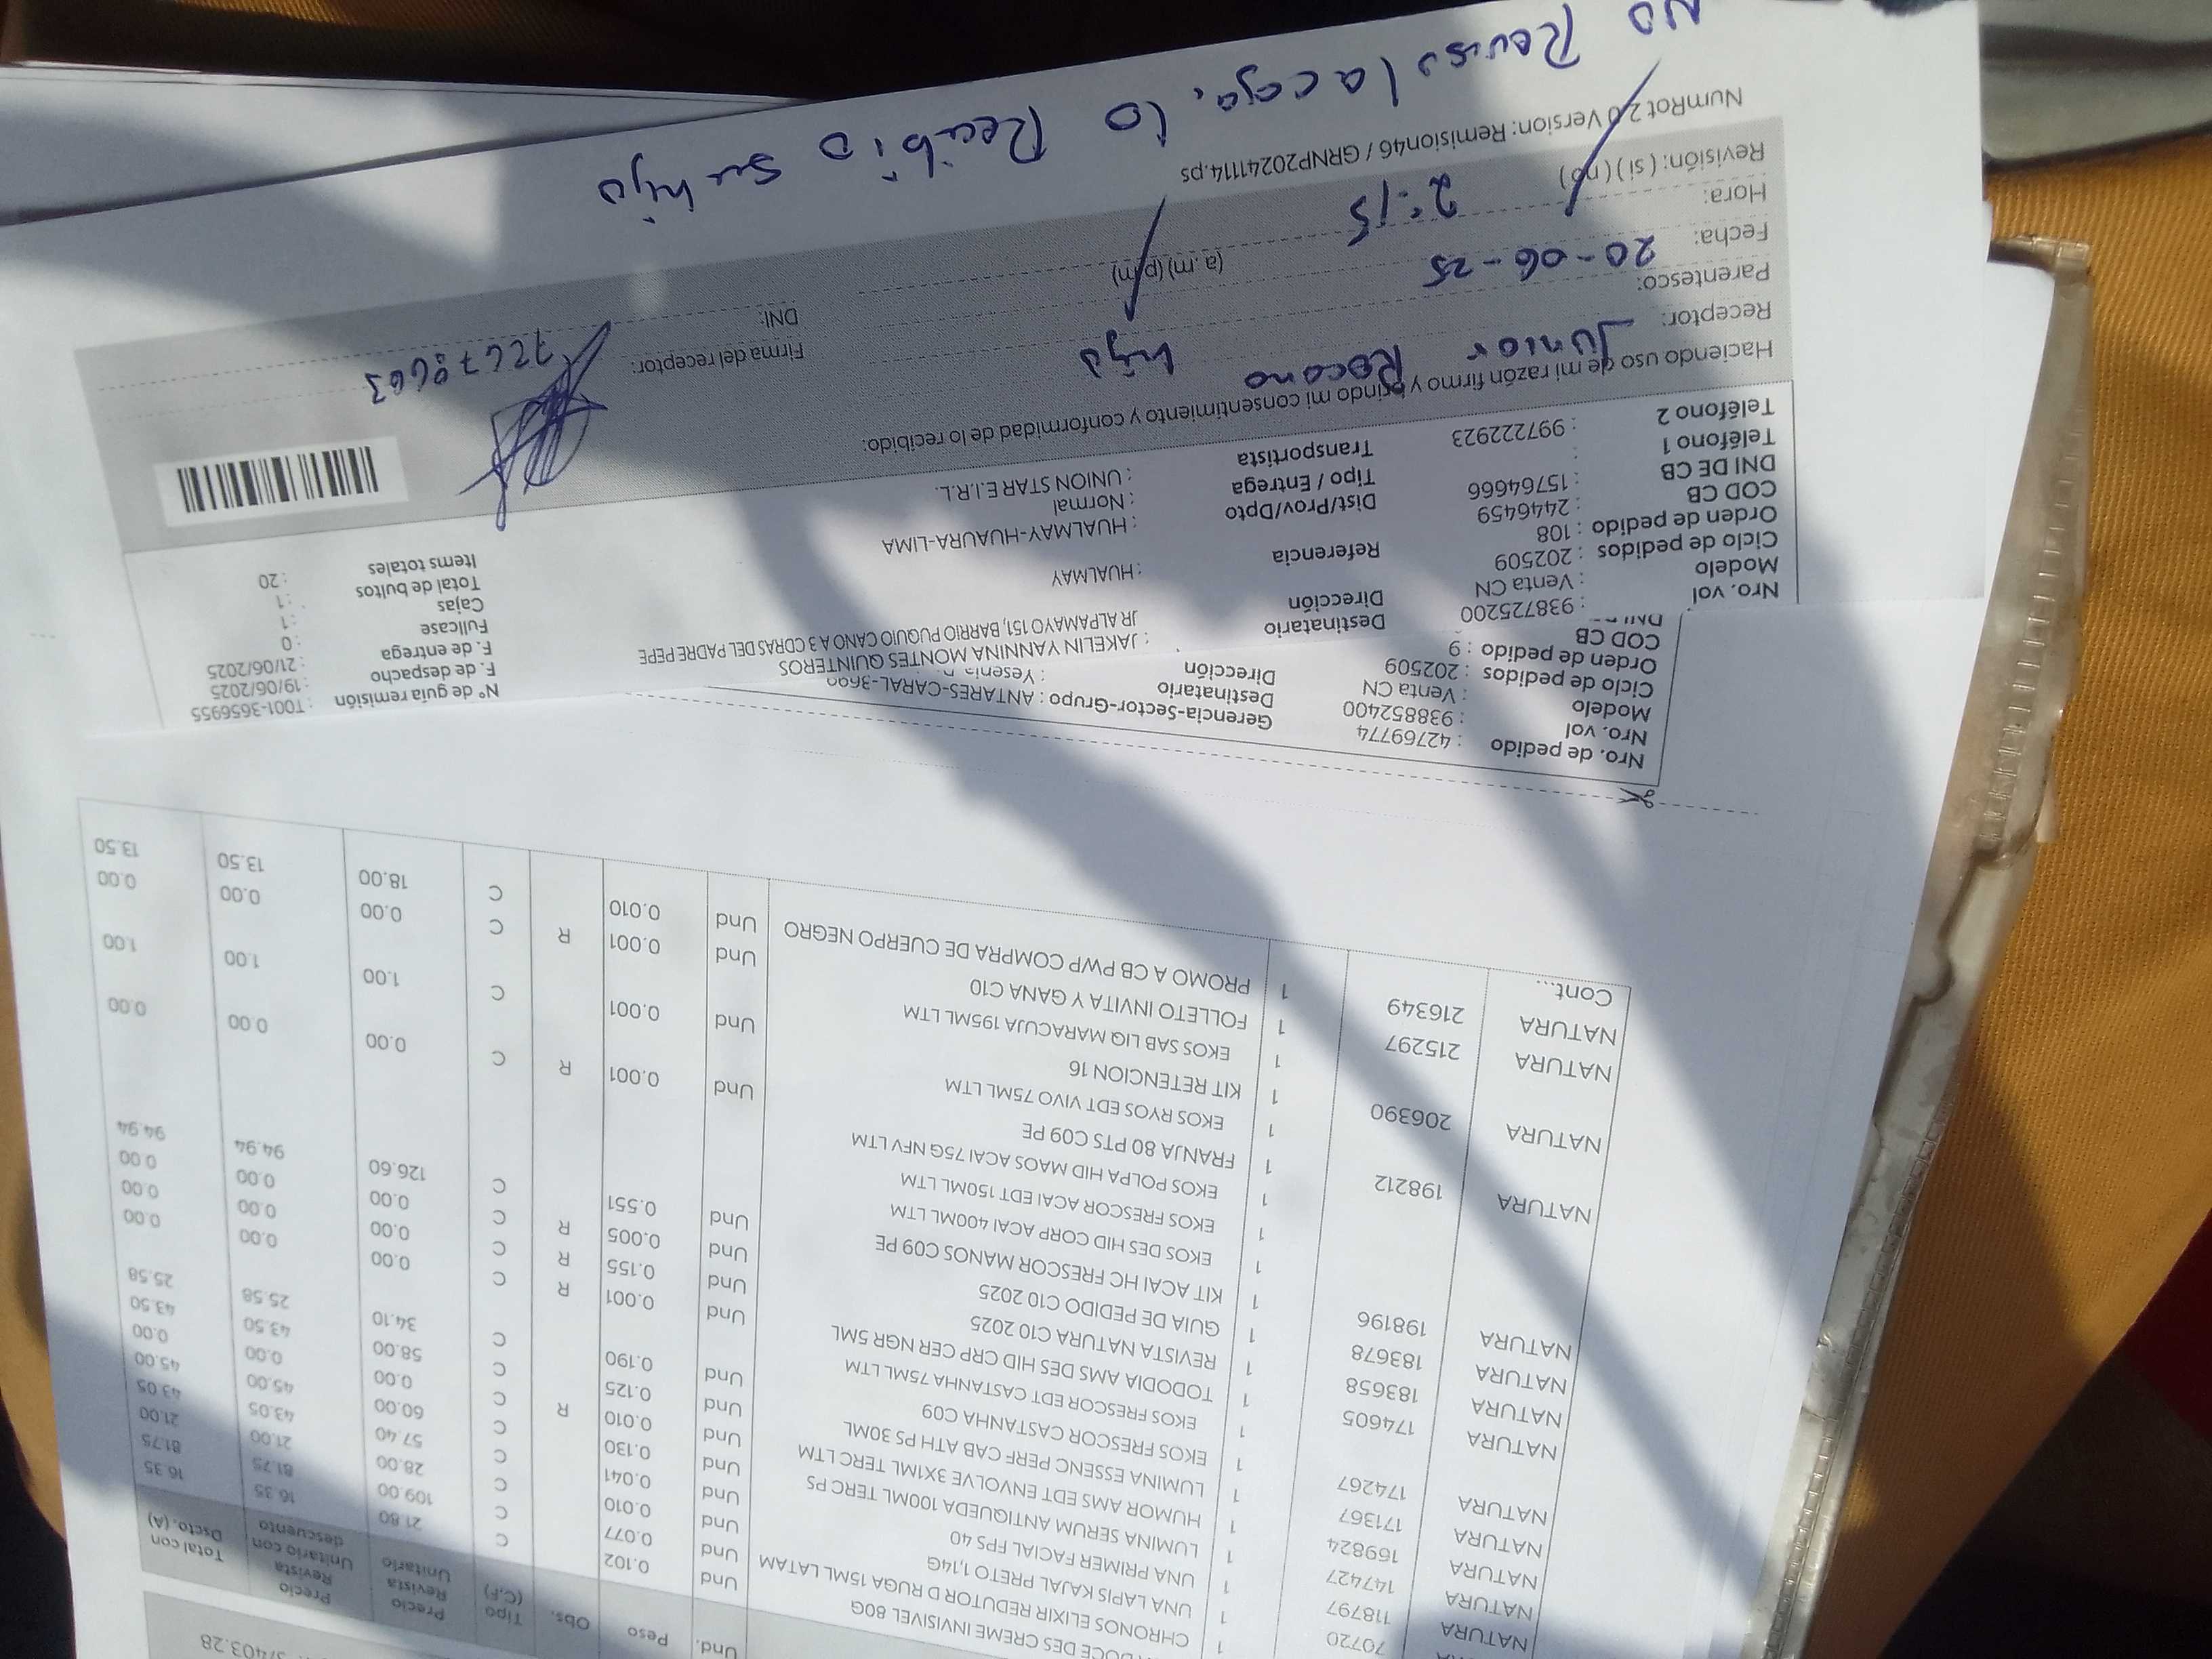 S/403.28
Und. Peso Obs. Tipo (C,F) Precio Revista Unitario Precio Revista Unitario con descuento Total con Dscto. (A)
DOCE DES CREME INVISIVEL 80G Und 0.102 C 21.80 16.35 16.35
1 CHRONOS ELIXIR REDUTOR D RUGA 15ML LATAM Und 0.077 C 109.00 81.75 81.75
NATURA 70720 1 UNA LAPIS KAJAL PRETO 1,14G Und 0.010 C 28.00 21.00 21.00
NATURA 118797 1 UNA PRIMER FACIAL FPS 40 Und 0.041 C 57.40 43.05 43.05
NATURA 147427 1 LUMINA SERUM ANTIQUEDA 100ML TERC PS Und 0.130 C 60.00 45.00 45.00
NATURA 169824 1 HUMOR AMS EDT ENVOLVE 3X1ML TERC LTM Und 0.010 R C 0.00 0.00 0.00
NATURA 171367 1 LUMINA ESSENC PERF CAB ATH PS 30ML Und 0.125 C 58.00 43.50 43.50
NATURA 174267 1 EKOS FRESCOR CASTANHA C09 Und 0.190 C 34.10 25.58 25.58
1 EKOS FRESCOR EDT CASTANHA 75ML LTM
NATURA 174605 1 TODODIA AMS DES HID CRP CER NGR 5ML Und 0.001 R C 0.00 0.00 0.00
NATURA 183658 1 REVISTA NATURA C10 2025 Und 0.155 R C 0.00 0.00 0.00
NATURA 183678 1 GUIA DE PEDIDO C10 2025 Und 0.005 R C 0.00 0.00 0.00
NATURA 198196 1 KIT ACAI HC FRESCOR MANOS C09 PE Und 0.551 C 126.60 94.94 94.94
1 EKOS DES HID CORP ACAI 400ML LTM
1 EKOS FRESCOR ACAI EDT 150ML LTM
1 EKOS POLPA HID MAOS ACAI 75G NFV LTM
NATURA 198212 1 FRANJA 80 PTS C09 PE Und 0.001 R C 0.00 0.00 0.00
1 EKOS RYOS EDT VIVO 75ML LTM
NATURA 206390 1 KIT RETENCION 16 Und 0.001 C 1.00 1.00 1.00
1 EKOS SAB LIQ MARACUJA 195ML LTM
NATURA 215297 1 FOLLETO INVITA Y GANA C10 Und 0.001 R C 0.00 0.00 0.00
NATURA 216349 1 PROMO A CB PWP COMPRA DE CUERPO NEGRO Und 0.010 C 18.00 13.50 13.50
Cont...
Nro. de pedido : 42769774 Gerencia-Sector-Grupo : ANTARES-CARAL-
Nro. vol : 938852400 Destinatario : Yesenia
Modelo : Venta CN Dirección
Ciclo de pedidos : 202509
Orden de pedido : 9
COD CB
Nro. vol : 938725200 Destinatario : JAKELIN YANNINA MONTES QUINTEROS N° de guía remisión : T001-3656955
Modelo : Venta CN Dirección JR ALPAMAYO 151, BARRIO PUQUIO CANO A 3 CDRAS DEL PADRE PEPE F. de despacho : 19/06/2025
Ciclo de pedidos : 202509 Referencia : HUALMAY F. de entrega : 21/06/2025
Orden de pedido : 108 Dist/Prov/Dpto : HUALMAY-HUAURA-LIMA Fullcase : 0
COD CB : 2446459 Tipo / Entrega : Normal Cajas : 1
DNI DE CB : 15764666 Transportista : UNION STAR E.I.R.L. Total de bultos : 1
Teléfono 1 : Items totales : 20
Teléfono 2 : 997222923
Haciendo uso de mi razón firmo y brindo mi consentimiento y conformidad de lo recibido:
Receptor: Junior
Parentesco: hijo Firma del receptor:
Fecha: 20-06-25 DNI: 72678663
Hora: 2:15 (a.m) (p.m)
Revisión: (si) (no)
NumRot 2.0 Version: Remision46 / GRNP20241114.ps
No Reviso la caja, lo Recibio su hijo